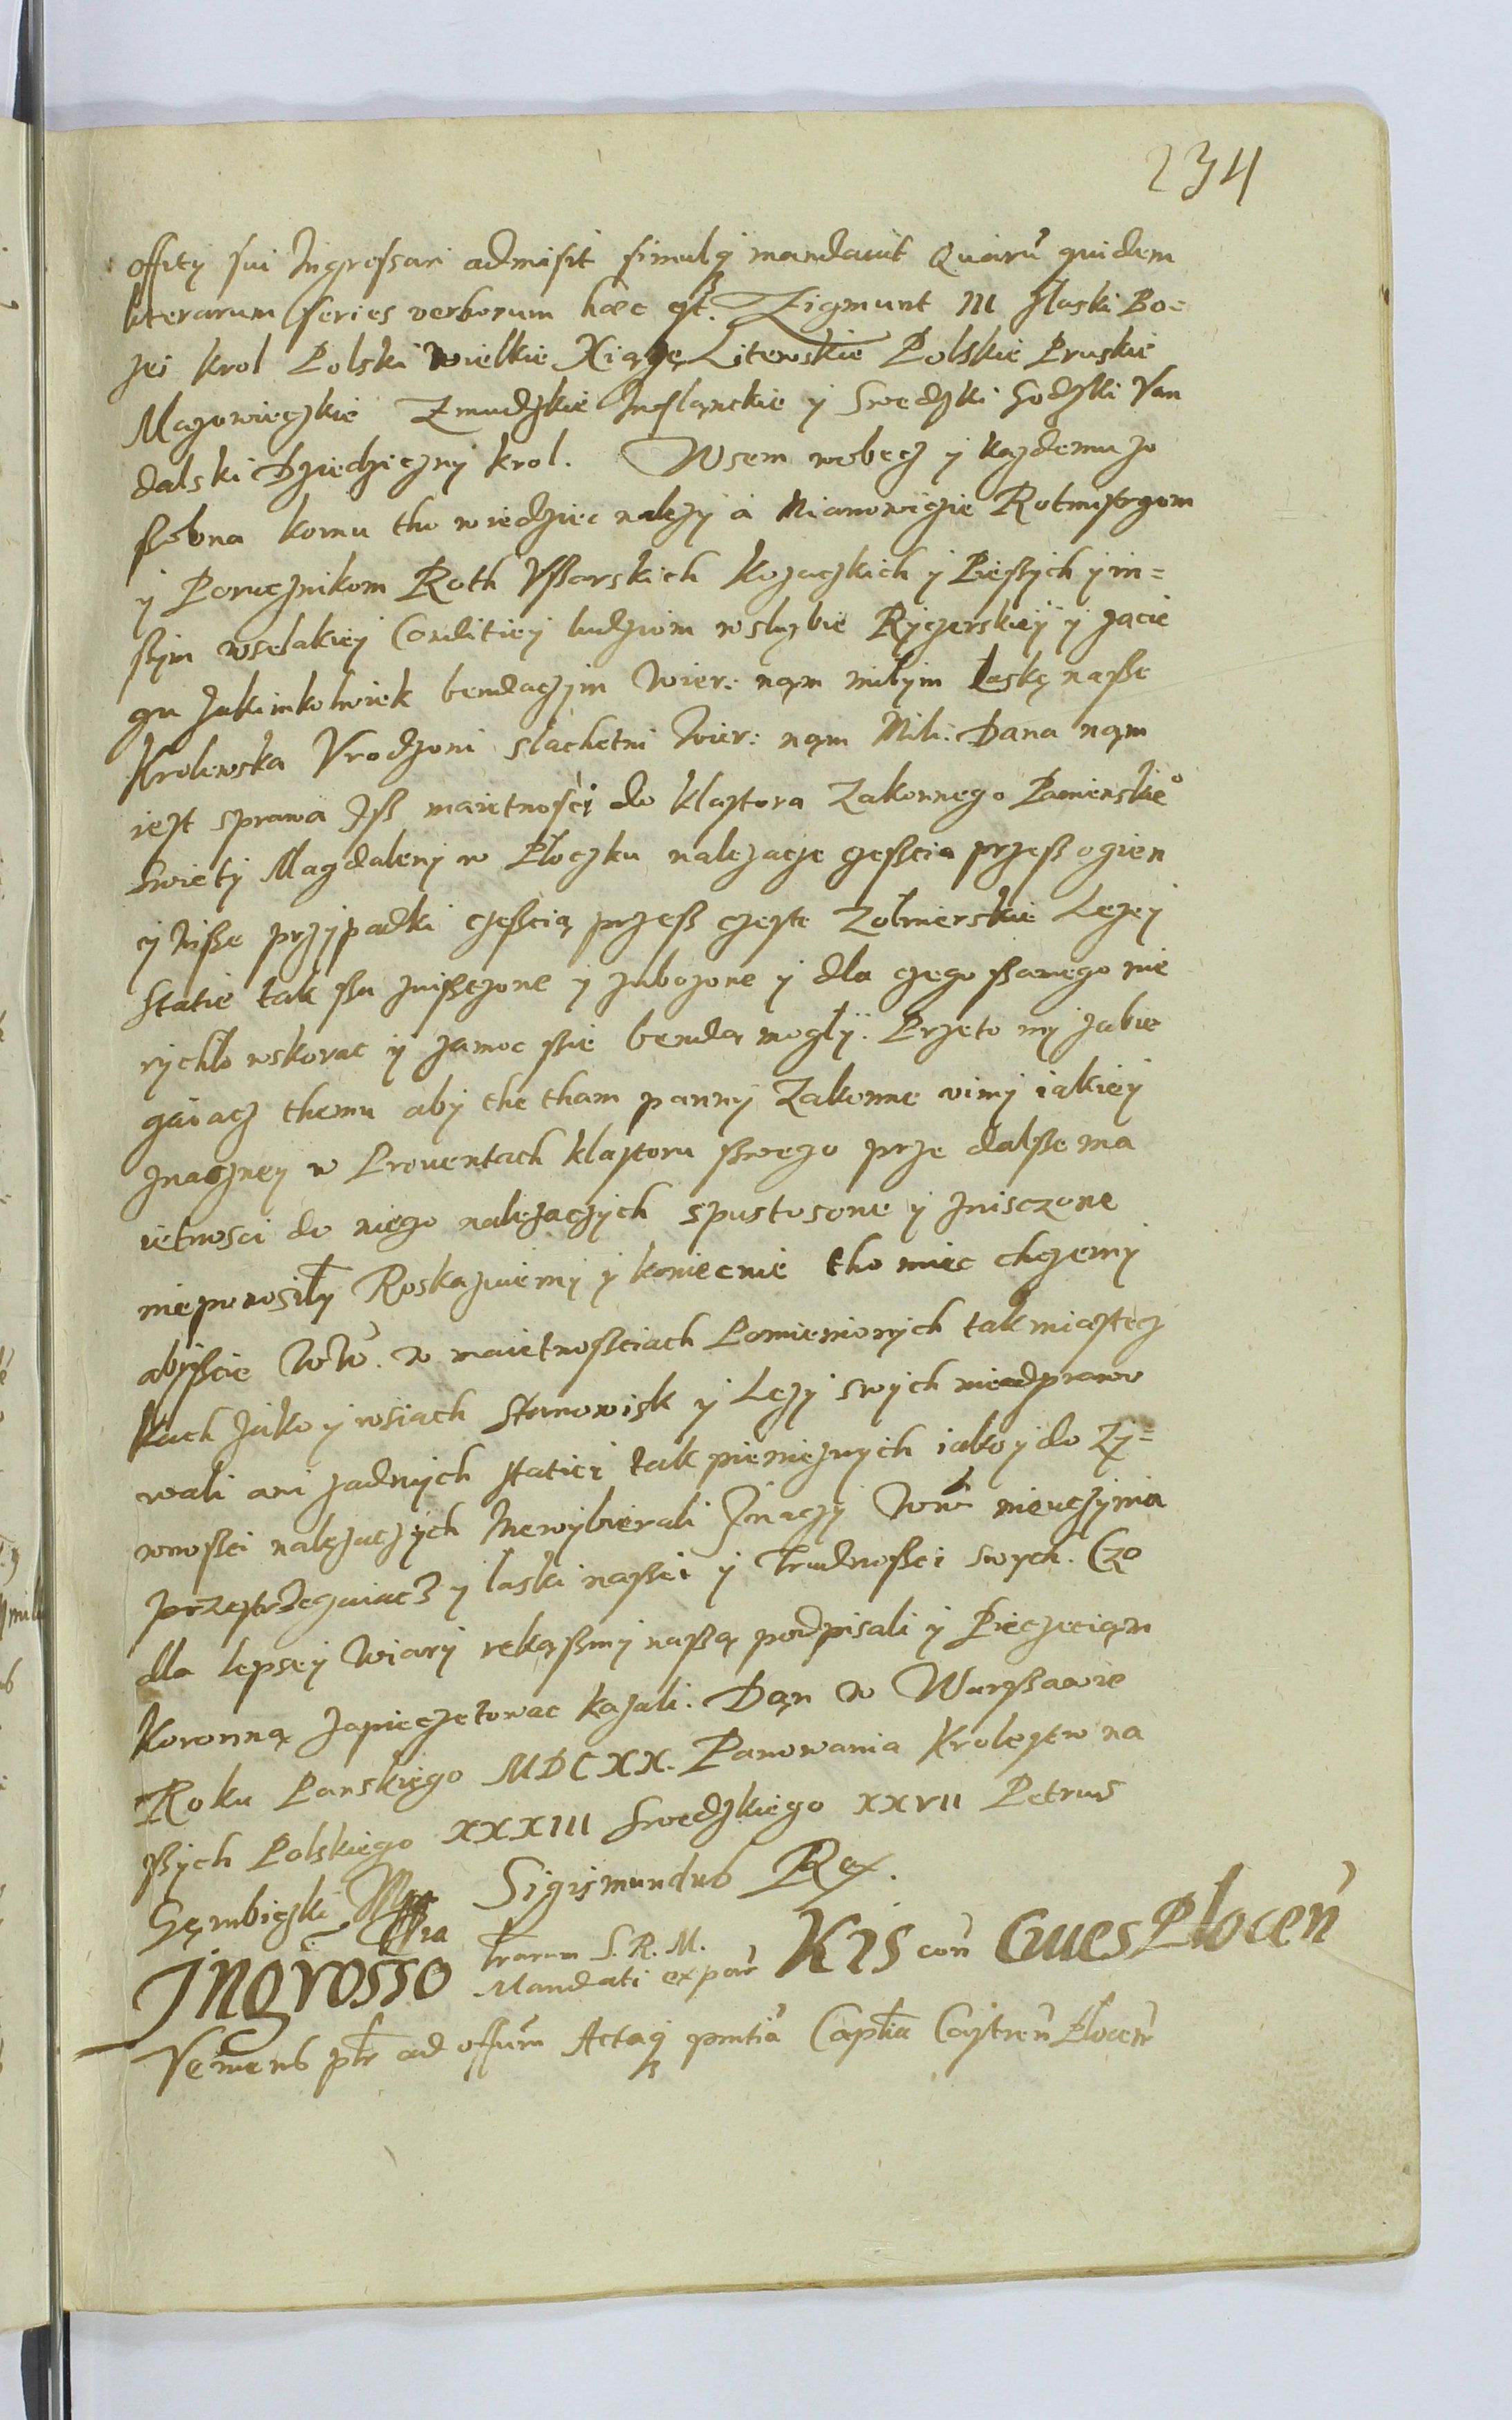 234
offity sui Ingrossari admisit simulq3 mandavit Quarũ quidem
literarum series verborum hæc est. Zigmunt III zlaski Bo-
zei krol Polski wielkie Xiąze Litewskie Polskie Pruskie
Mazowieczkie Zmudzkie Inflanckie y Swedzki Godzki Van
dalski Dziedziczny krol. Wsem wobecz y kazdemu zo
ssobna komu tho wiedziec nalezy à Mianowiczie Rotmistrzom
y Porucznikom Roth Vssarskich kozaczkich y Piessych y in=
ssym wselakiey Conditiey ludziom wsluzbie Ryczerskiey y zacie
gu Jakimkolwiek bendaczym wier: nąm milym łaskę nasse
krolewska Vrodzoni slachetni wier: nąm Mili: Dana nąm
iest sprawa Iss maietnosci do klastora Zakonnego Panienskie°
Swiety Magdaleny w Płoczku nalezacze czesscia przess ogien
y insse przypadki czesscią przess czeste Zołnierskie Lezey
Statie tak ssu znissczone y zubozone y dla czego ssamego nie
rychło wskorac y zamoc ssie benda mogły. Przeto my zabie
gaiacz themu aby the tham panny Zakonne winy iakiey
znaczney w Proventach klastoru sswego prze dalsse ma
ietnosci do niego nalezaczych spustosone y znisczone
nieponosiły Roskazuiemy y koniecnie tho miec chczemy
abyscie ww. w maietnossciach Pomienionych tak miastecz
kach Jako y wsiach Stanowisk y Lezy swych nieodprawo
wali ani zadnych statiei tak pienieznych iako y do Zy=
wnosci nalezaczych niewybierali Inaczy ww nieuczynia
przestrzegaiacz y laski nassei y Trudnossci swych. Czo
dla lepsey wiary rekąssmy nassą podpisali y Pieczeciąm
koronną zapieczetowac kazali. Dąn w Warssawie
Roku Panskiego MDCXX. Panowania krolestw na
ssych Polskiego XXXIII Swedzkiego XXVII Petrus
Gęmbiczki Sigismundus Rex.
Ingrosso lrarum S. R. M. Mandati ex par Kis con Cives Plocen
Veniens ptr ad offum Actaq3 pntia Captia Castren Plocen